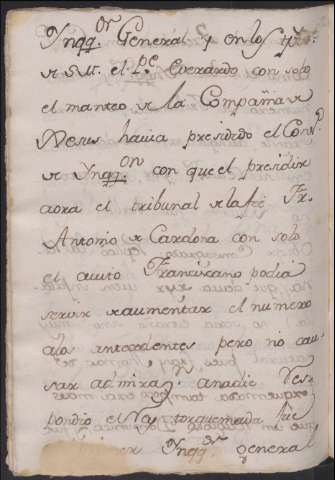 Ynqq.or General y en los
de S.M. el Pe Everardo con solo
el manteo de la Compañia de
Jesus havia presidido el Cons.o
de Ynqq.on con que el presidir
aora el tribunal de la fé Fr.
Antonio de Cardona con solo
el avito Franciscano podia
servir de aumentar el numero
a los antecedentes pero no cau-
sar admiraz.n anadie Res-
pondio el Rey torquemada fue
Ynqq.or genera